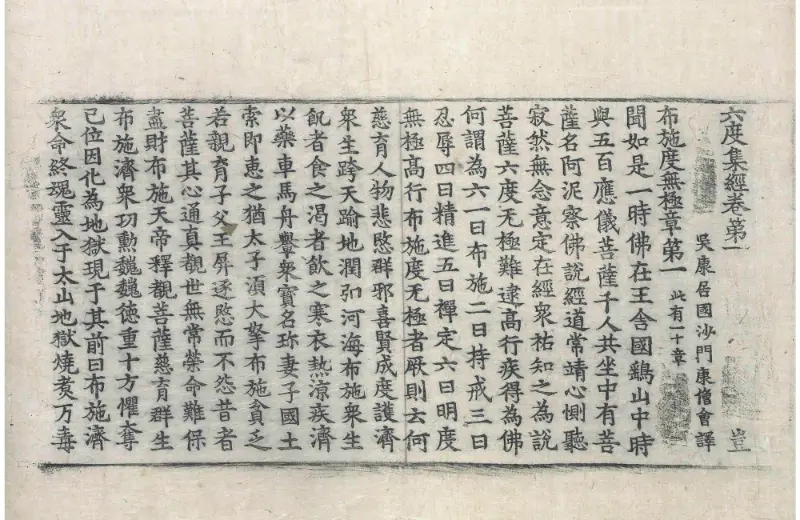 六度集經卷第一
豈
吳康居國沙門康僧會譯
布施度無極章第一 此有一十章
聞如是一時佛在王舍國鷄山中時
與五百應儀菩薩千人共坐中有菩
薩名阿泥察佛說經道常靖心惻聽
寂然無念意定在經衆祐知之為說
菩薩六度无極難逮高行疾得為佛
何謂為六一曰布施二曰持戒三曰
忍辱四曰精進五曰禪定六曰明度
無極高行布施度无極者厥則云何
慈育人物悲愍群邪喜賢成度護濟
衆生跨天踰地潤弘河海布施衆生
飢者食之渴者飲之寒衣熱涼疾濟
以藥車馬舟轝衆寶名珎妻子國土
索即惠之猶太子湏大拏布施貧乏
若親育子父王屏逐愍而不怨昔者
菩薩其心通真覩世無常榮命難保
盡財布施天帝釋覩菩薩慈育群生
布施濟衆功勲巍巍徳重十方懼奪
己位因化為地獄現于其前曰布施濟
衆命終䰟靈入于太山地獄燒煑万毒